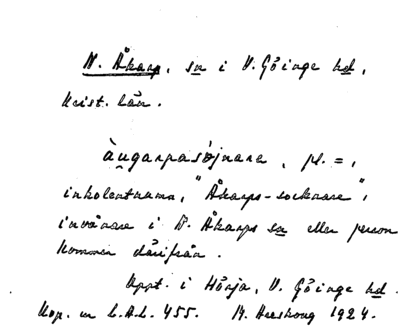 N. Åkarp, sn i V. Göinge hd,
Krist. län.
àu̯garpasøjnara, pl. =,
inkolentnamn, "Åkarps-socknare",
invånare i N. Åkarps sn eller person
kommen därifrån.
Uppt. i Hörja, V. Göinge hd.
Kop. ur L.A.L. 455. 1924.